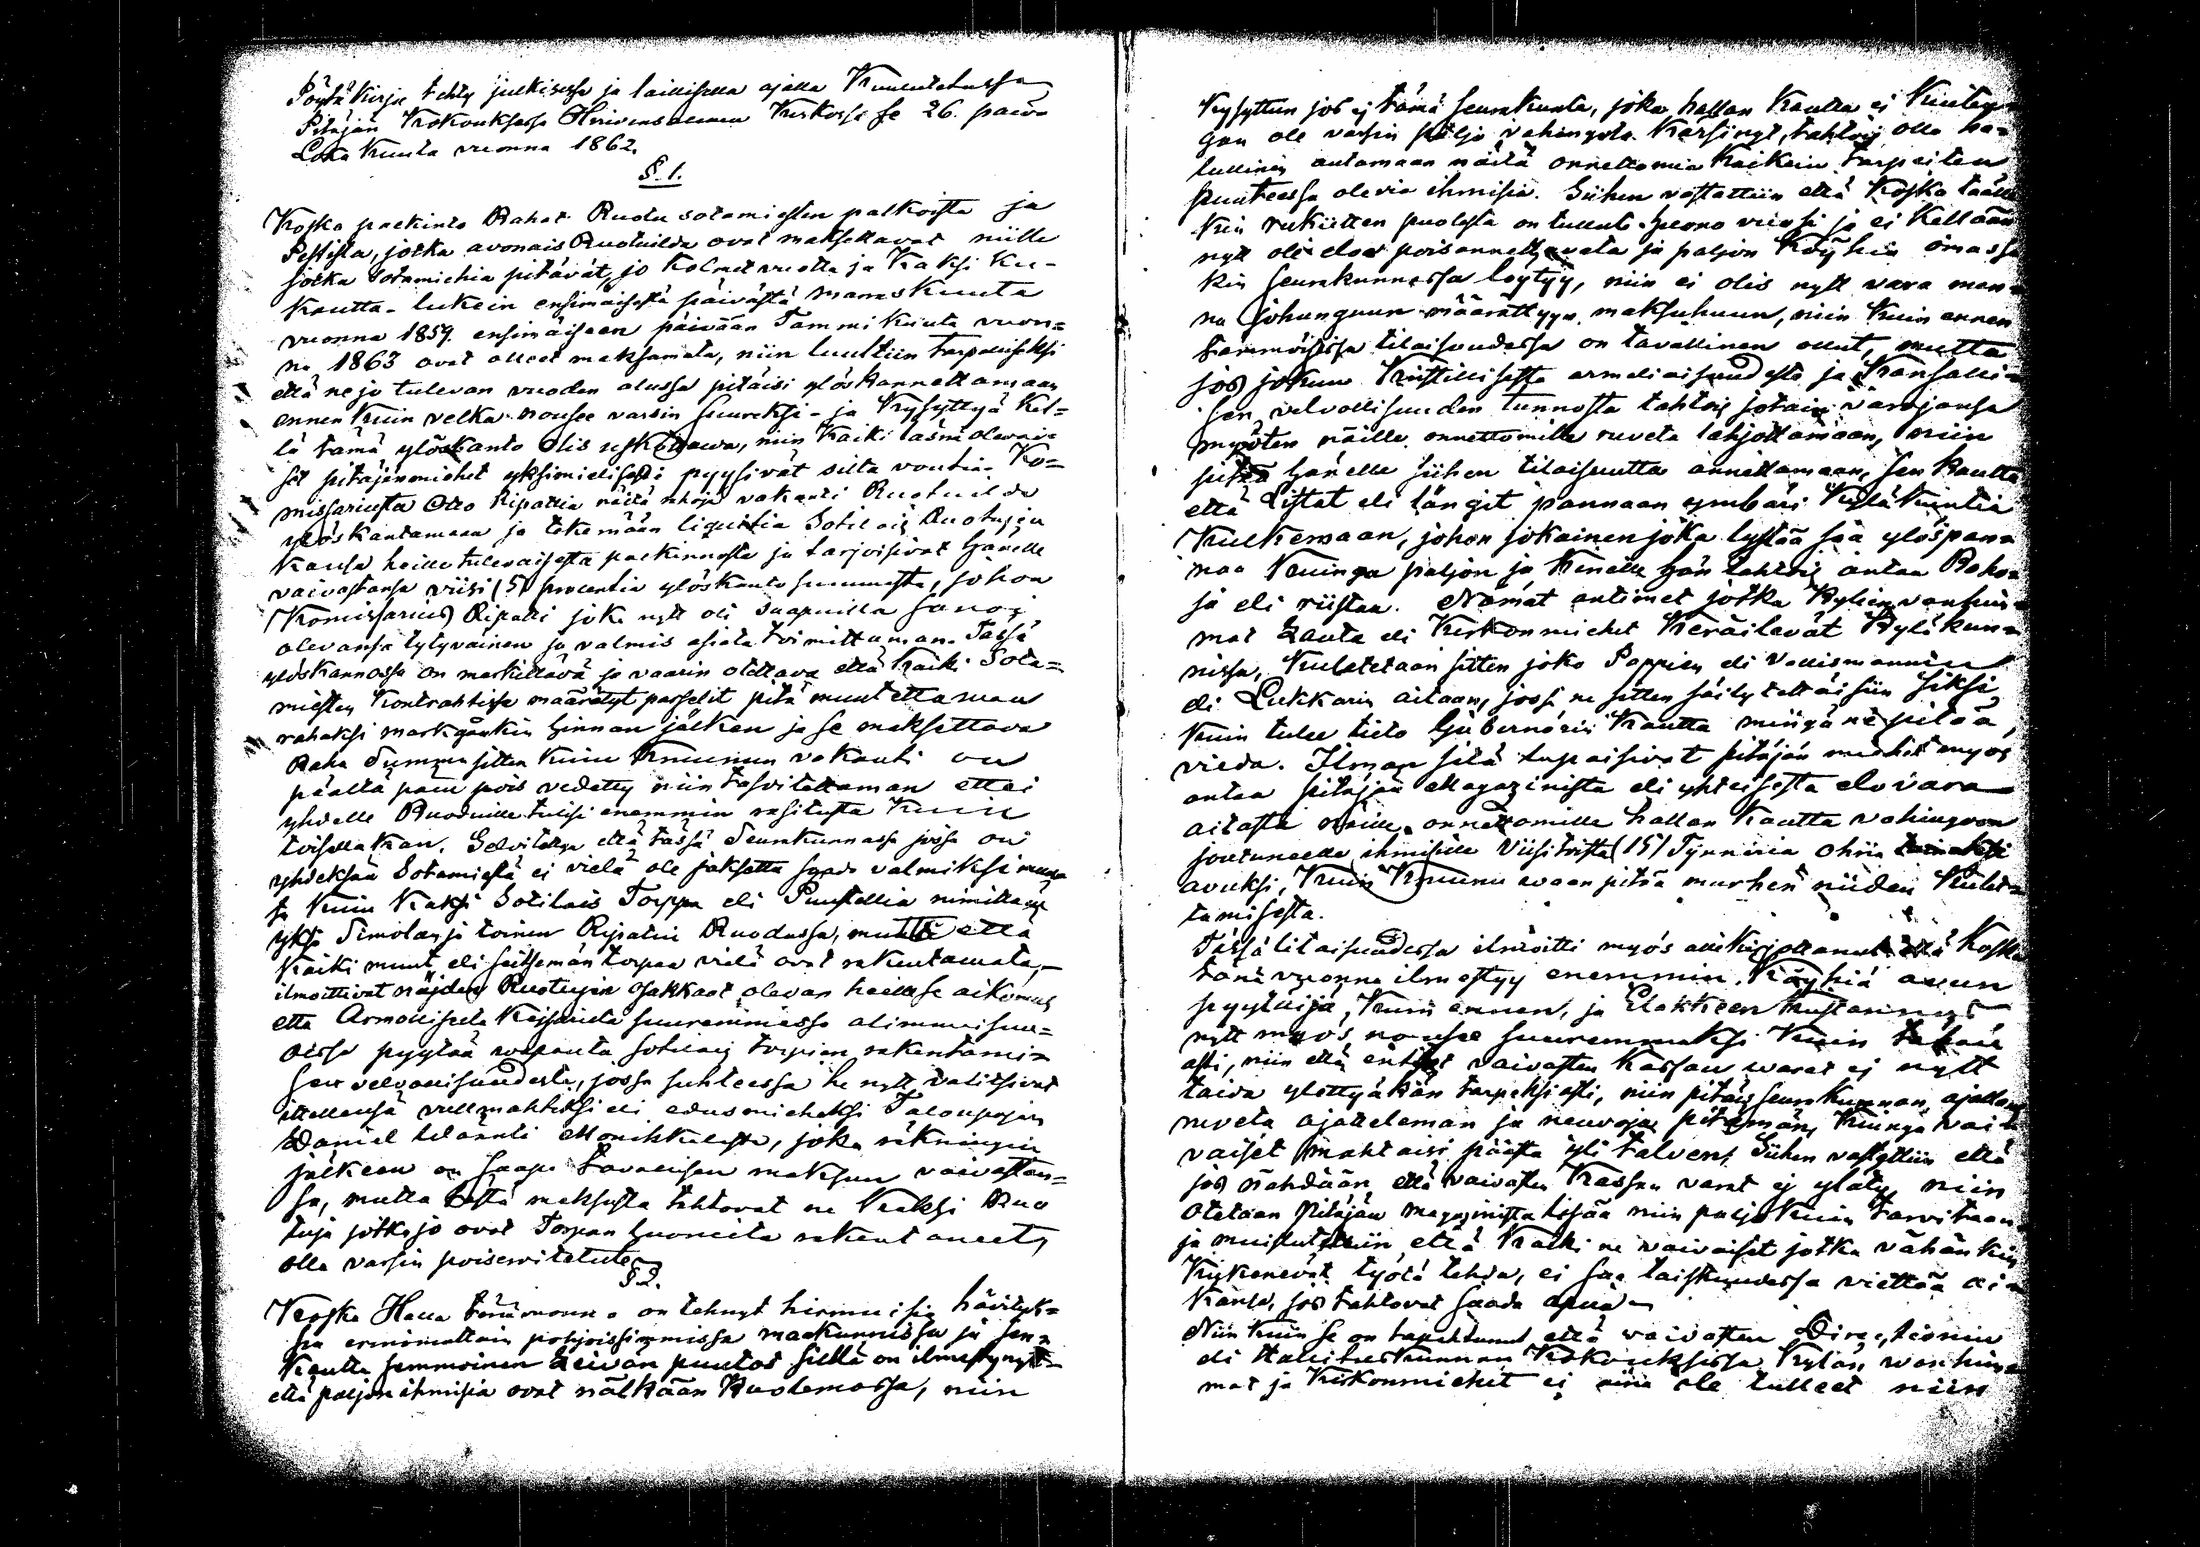 Pöytäkirja tehty julkisessa ja laillisella ajalla Kuulutetussa
Pitäjän Kokouksessa Hirvensalmen Kirkossa se 26. päivä
Loka Kuuta vuonna 1862.
§. 1.
Koska palkinto Rahat Ruotu sotamiesten palkoista ja
Pestistä, jotka avonais Ruotuilda ovat maksettavat niille
jotka Sotamiehiä pitävät, jo Kolmet vuotta ja Kaksi Ku-
kautta - lukein ensimäisestä päivästä Marraskuuta
vuonna 1859. ensimäiseen päivään Tammi Kuuta vuon=
na 1863 ovat olleet maksamata, niin luultiin tarpeliseksi
että ne jo tulevan vuoden alussa pitäisi ylöskannettamaan
ennen kuin velka nousee varsin suureksi - ja Kysyttyä Kel=
lä tämä ylöskanto olis uskottawa, niin Kaiki läsnä olewai=
set pitäjänmiehet yksimielisesti pyysivät siltä voudin Ko=
missariusta Otto Ripattia näitä rahoja vakanti Ruotuilda
ylöskantamaan ja tekemään liquitia Sotilais Ruotujen
Kansa heille tulevaisesta palkinnosta ja tarjoisivat hänelle
vaivastansa viisi (5) procentia ylöskanto summasta, johon
Komissarius Ripatti joka nytt oli saapuilla sanoi
olevansa tytyväinen ja valmis asiata toimittaman. Tässä
ylöskannossa on merkittävä ja vaarin otettava että Kaiki Sota=
miesten Kontrahtissa määrätyt parselit pitä muutettaman
rahaksi markgångin hinnan jälken ja se maksettava
Raha Summa sitten Kuin Kruunun vakanti on
päältä pain pois vedetty niin tasoitettaman ettei
yhdelle Ruodulle tulisi enemmin rasitusta Kuin
toisellakan. Selvitettyä että tässä Seurakunnassa jossa on
yhdeksän Sotamiestä ei vielä ole jaksettu saada valmiiksi muuta
ta Kuin Kaksi Sotilais Torppa eli Puustellia nimittäin
yksi Simolan ja toinen Ripatin Ruodussa, mutta että
Kaiki muut eli seitsemän torppaa vielä ovat rakentamata,
ilmoittivat näiden Ruotujen osakkaat olevan heille aikomus
että Armolliselta Keisarilta suurimmassa alimmaisuu=
dessa pyytää vapautta sotilais torppien rakentami=
sen velvollisuudesta, jossa suhteessa he nytt valitsivat
itsellensä vullmahtiksi eli edusmieheksi Talonpojan
Daniel Wäänti Monikkalasta, joka räkningin
jälkeen on saapa tavallisen maksun vaivastan=
sa, mutta tästä maksusta tahtovat ne Kaksi Ruo
tuja jotka jo ovat Torpan huoneita rakentaneet,
olla varsin poiseroitetut.
§ 2.
Koska Halla tänä wuonna on tehnyt hirmuisia hävityk=
siä erinomattain pohjoisimmissa maakunnissa ja sen
Kautta semmoinen Leivän puutos siellä on ilmestynyt
että paljon ihmisiä ovat nälkään Kuolemassa, niin
Kysyttiin jos ej tämä seurakunta, joka hallan Kautta ei Kuiten
gan ole varsin paljo vahingota Kärsinyt, tahtois olla ha=
lullinen autamaan näitä onnettomia Kaikein tarpeiten
puuteessa olevia ihmisiä. Siihen vastattiin että Koska täällä
Kin rukiitten puolesta on tullut huono vuosi ja ei Kellään
nytt ole eloa poisannettavata ja paljon Köyhiä omassa
Kin seurakunnassa löytyy, niin ei olis nytt vara men=
nä johonguun määrättyyn maksuhuun, niin Kuin ennen
tämmöisissä tilaisuudessa on tavallinen ollut, mutta
jos jokuu Kristillisestä armeliaisuudesta ja Kansalli=
sen velvollisuuden tunnosta tahtois jotain varojansa
myöten näille onnettomille ruveta lahjottamaan, niin
pitää hänelle siihen tilaisuutta annettamaan, sen Kautta
että Listat eli längit pannaan ymbäri Kyläkuntia
Kulkemaan, johon jokainen joka lystää saa ylöspan=
naa Kuinga paljon ja Kenelle hän tahtois antaa Raho=
ja eli viljaa. Nämät antimet jotka Kylien vanhim=
mat Lauta eli Kirkonmiehet Keräilevät Kyläkun=
nissa, Kuletetaan sitten joko Pappien eli Vallesmannin
eli Lukkarin aitaan, jossa ne sitten säilytettäisiin siksi,
Kuin tulee tieto Gubernörin Kautta mingä ne pitää
vieda. Ilman sitä lupaisivat Pitäjän miehet myös
antaa Pitäjän Magazinista eli yhteisestä elovara
aitasta näille onnettomille hallan Kautta vahingoon
joutuneelle ihmisille Viisitoista (15) Tynnöriä ohria
avuksi, Kuin Kruunu waan pitää murhen niiden Kulet=
tamisesta.
Tässä tilaisuudessa ilmoitti myös allekirjottanut että Koska
tänä vuonna ilmestyy enemmin Köyhiä avun
pyytäjiä, Kuin ennen, ja Elakkeen Kustannus
nytt myös nousee suuremmaksi Kuin
asti, niin että entiset vaivasten Kassan warat ej nytt
taida ylettyäkän tarpeksi asti, niin pitäis seurakunnan ajallans
ruveta ajatteleman ja neuvoja pitämän, Kuinga wai=
vaiset mahtaisi päästä yli talvens. Siihen vastattiin että
jos nähdään että vaivasten Kassan varat ej ylety, niin
otetaan Pitäjän magazinista lisää niin paljo Kuin tarvitaan
ja muistutettiin että Kaiki ne vaivaiset jotka vähän Kin
Kykenevät työtä tehdä, ei saa laiskuudessa viettää ai=
Kansa, jos tahtovat saada apua.
Niin Kuin se on tapahtunut että vaivasten Direktionin
eli Hallituskunnan Kokouksissa Kylän wanhim=
mat ja Kirkonmiehet ei aina ole tulleet niin